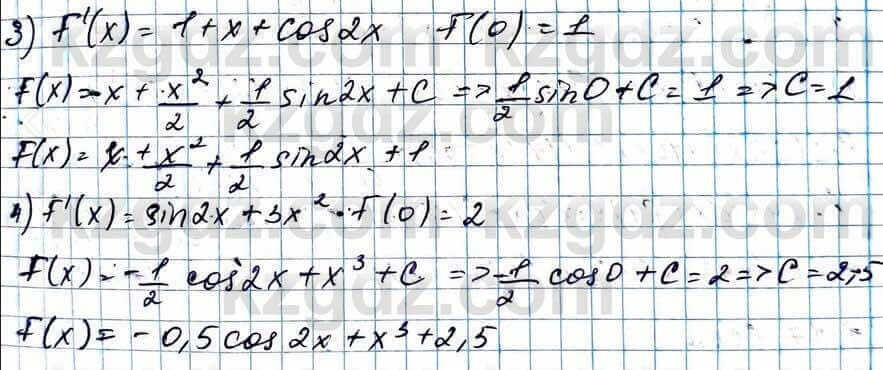 3) F'(x) = 1 + x + cos2x F(0) = 1
F(x) = x + x²/2 + 1/2 sin2x + C => 1/2 sin0 + C = 1 => C = 1
F(x) = x + x²/2 + 1/2 sin2x + 1
4) F'(x) = sin2x + 3x² F(0) = 2
F(x) = -1/2 cos2x + x³ + C => -1/2 cos0 + C = 2 => C = 2,5
F(x) = -0,5 cos2x + x³ + 2,5